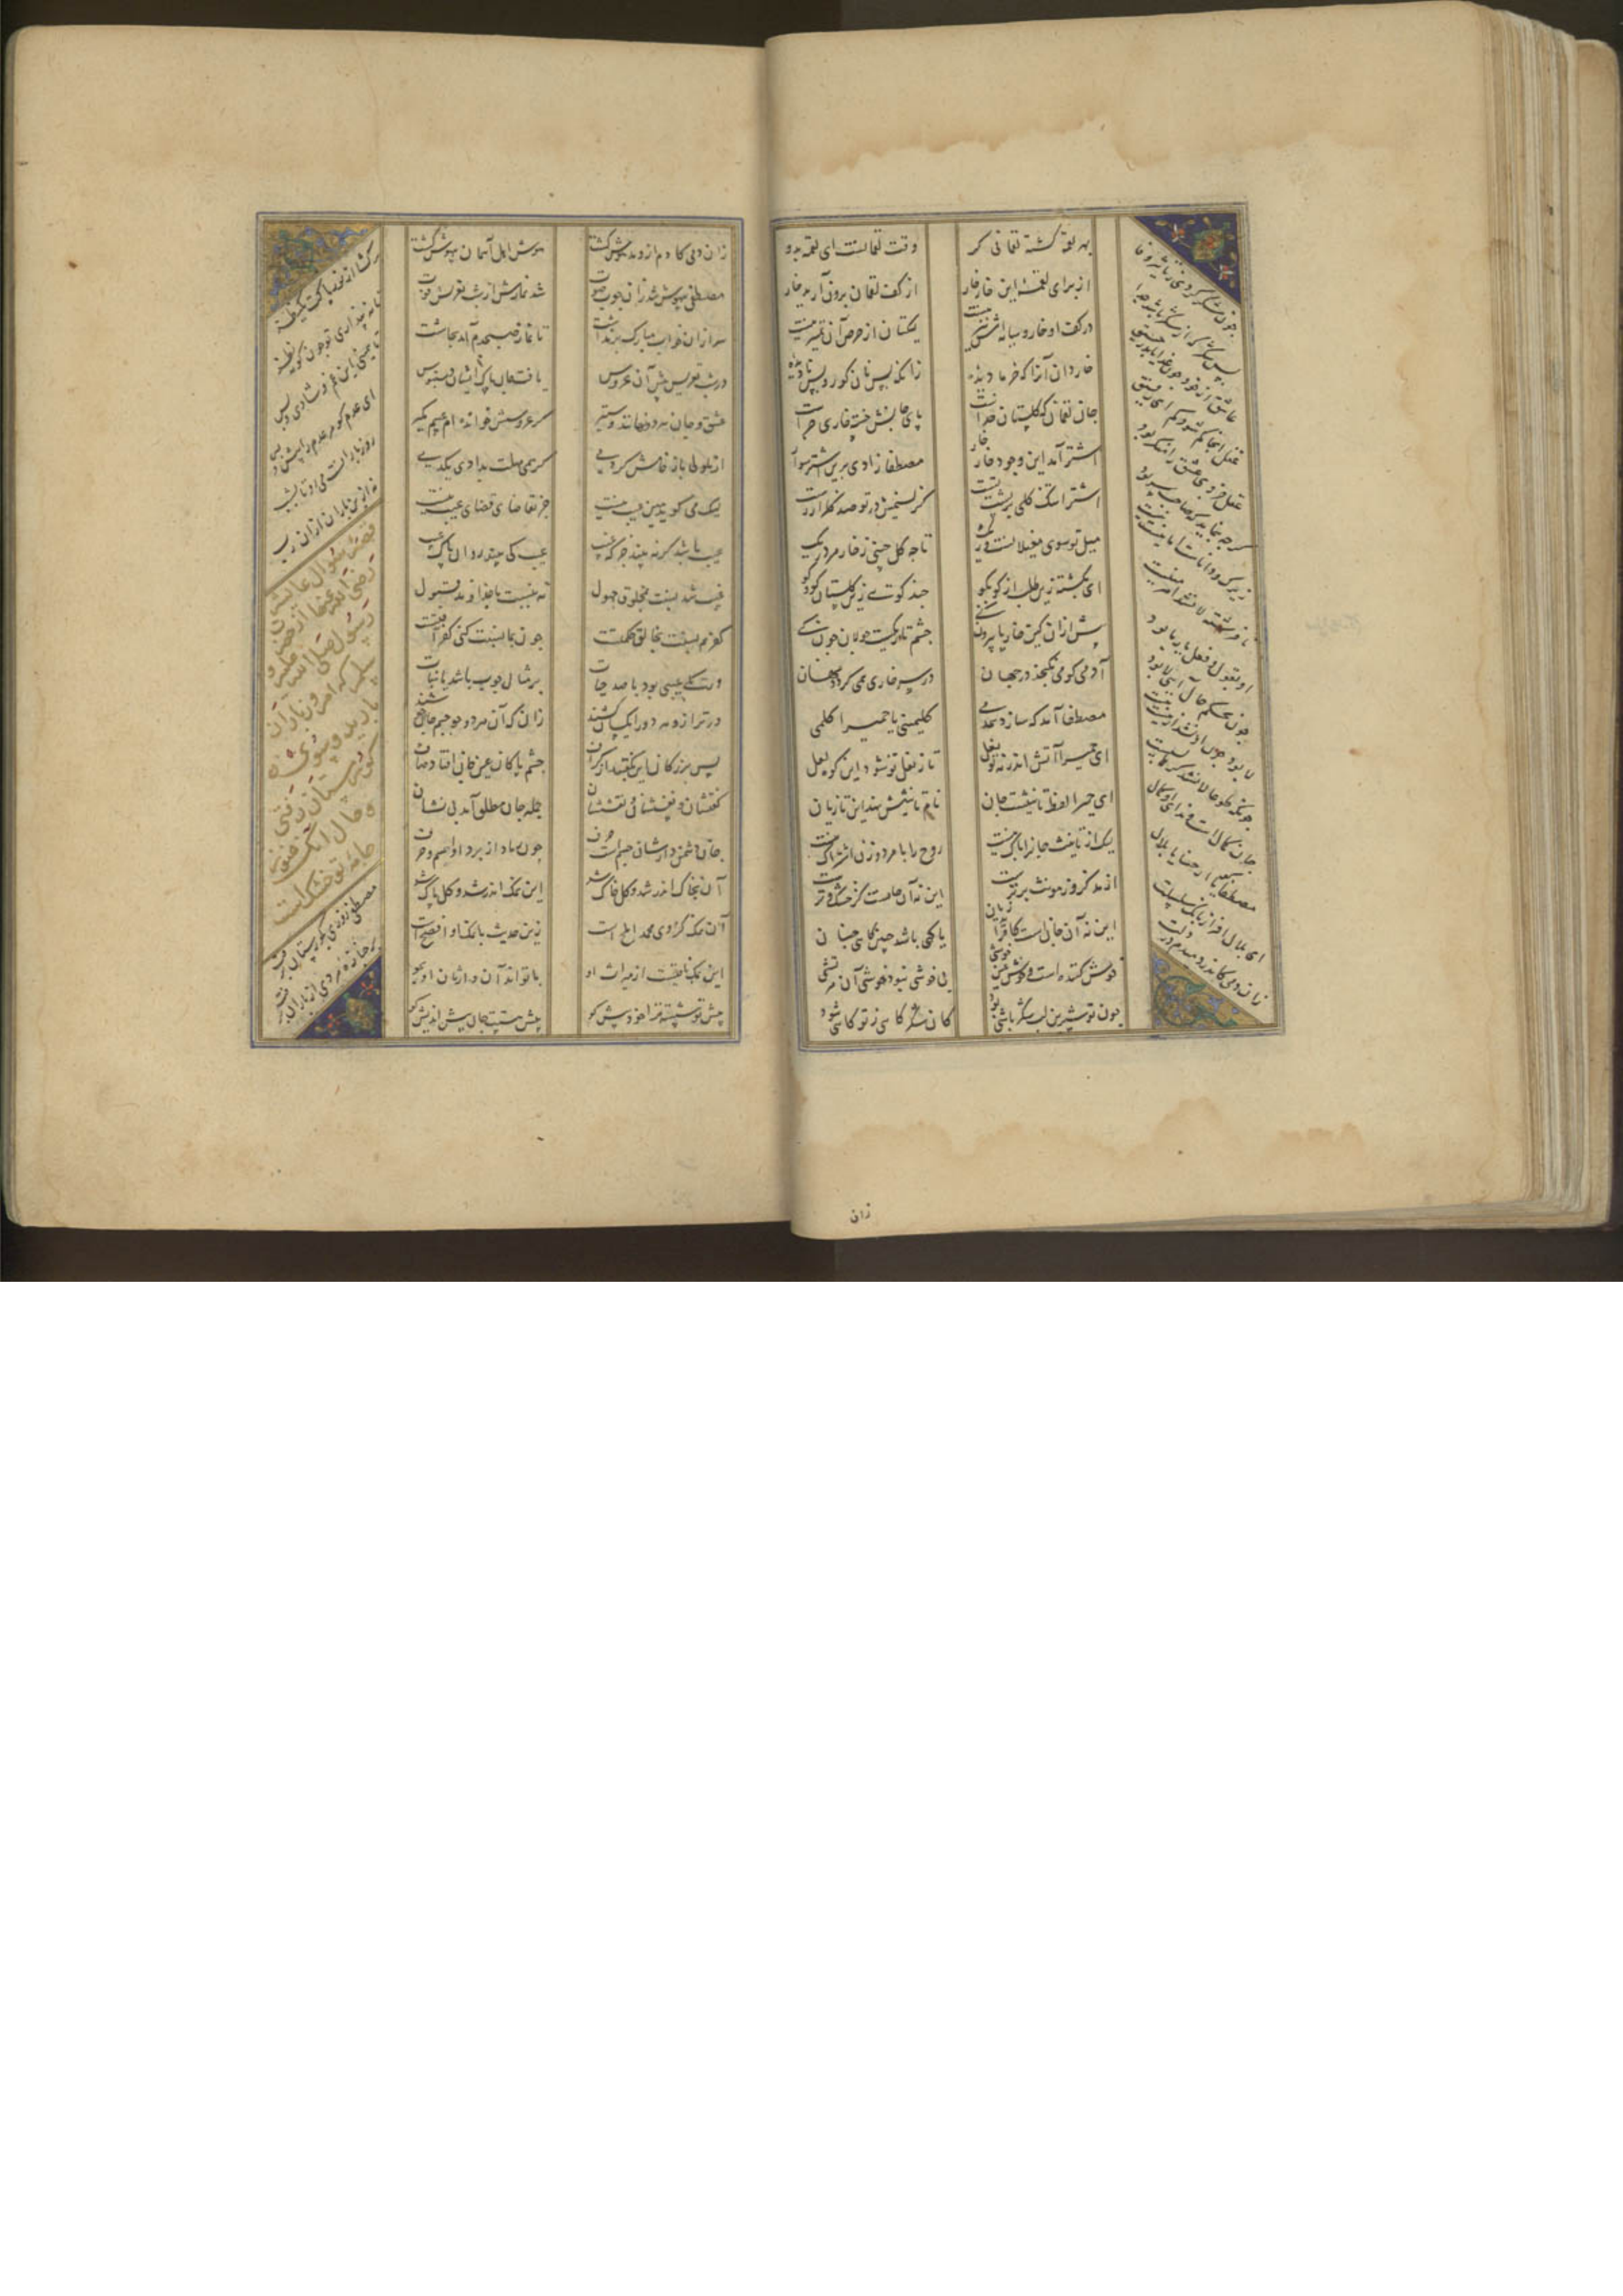 بهر لقمه کشته لقمانی کر وقت لقمانست ای لقمه برو
از برای لقمه این خار خار از کف لقمان برون آرید خار
در کف او خار و سایه اش نیز نیست لیکتان از حرص آن تمییز نیست
خار دان آنرا که خرما دیده زانکه بس نان کور و بس نادیده
جان لقمان که گلستان خداست پای جانش خسته خاری چراست
اشتر آمد این وجود خار خار مصطفا زادی برین اشتر سوار
اشترا تنگ گلی بر پشت تست کز نسیمش در تو صد گلزار رست
میل تو سوی مغیلانست و ریگ تا چه گل چینی ز خار مرد ریگ
ای بگشته زین طلب از کو بکو چند گویی زین گلستان کو و کو
پیش ازان کین خار پا بیرون کنی چشم تاریکست جولان چون کنی
آدمی کو می نگنجد در جهان در سر خاری همی گردد نهان
مصطفا آمد که سازد همدمی کلمینی یا حمیرا کلمی
ای حمیرا آتش اندر نه تو نعل تا ز نعل تو شود این کوه لعل
ای حمیرا لفظ تانیثست جان نام تانیثش نهند این تازیان
لیک از تانیث جانرا باک نیست روح را با مرد و زن اشراک نیست
از مذکر وز مونث برترست این نه آن جانست کز خشک و ترست
این نه آن جانی است کافزاید ز نان یا گهی باشد چنین گاهی چنان
خوش کننده است و خوش عین خوشی بی خوشی نبود خوشی آن مرتشی
چون تو شیرین لب شکر باشی بود کان شکر گاهی ز تو غایب شود
چون شکر گردی ز تاثیر وفا
پس شکر کی از شکر باشد جدا
عاشق از خود چون غذا یابد رحیق
عقل آنجا گم شود گم ای رفیق
عقل جزوی عشق را منکر بود
گرچه بنماید که صاحب سر بود
زیرک و داناست اما نیست نیست
تا فرشته لا نشد اهرمنیست
او بقول و فعل یار ما بود
چون بحکم حال آیی لا بود
لا بود چون او نشد از هست نیست
چونکه طوعا لا نشد کرها بسیست
جان کمالست و ندای او کمال
مصطفی گویان ارحنا یا بلال
ای بلال افراز بانگ سلسلت
زان دمی کاندر دمیدم در دلت
زان
زان دمی کادم ازو مدهوش گشت هوش اهل آسمان بیهوش گشت
مصطفی بیهوش شد زان خوب صوت شد نمازش از شب تعریس فوت
سر ازان خواب مبارک بر نداشت تا نماز صبحدم آمد بچاشت
در شب تعریس پیش آن عروس یافت جان پاک ایشان دستبوس
عشق و جان هر دو نهانند و ستیر گر عروسش خوانده ام عیبم مگیر
از ملولی یار خامش کردمی گر همی مهلت بدادی یک دمی
لیک می گوید همین عیب نیست جز تقاضای قضای غیب نیست
عیب باشد گر نه بیند جز که عیب عیب کی بیند روان پاک غیب
عیب شد نسبت بمخلوق جهول نه بنسبت با خداوند قبول
کفر هم نسبت بخالق حکمتست چون بما نسبت کنی کفر آفتست
ور یکی عیبی بود با صد حیات بر مثال چوب باشد با نبات
در ترازو هر دو را یکسان کشند زان که آن هر دو چو جسم و جان خوشند
پس بزرگان این نگفتند از گزاف جسم پاکان عین جان افتاد صاف
گفتشان و نفسشان و نقششان جمله جان مطلق آمد بی نشان
جان دشمن دارشان جسم است صرف چون زیاد از نرد او اسمیست صرف
آن بخاک اندر شد و کل خاک شد این نمک اندر شد و کل پاک شد
آن نمک کز وی محمد املح است زین حدیث با نمک او افصح است
این نمک باقیست از میراث او با تواند آن وارثان او بجو
پیش تو شسته ترا خود پیش کو پیش هستت جان پیش اندیش کو
یک نظر
ای عدم کو مر عدم را پیش و پس
روز بارانست می رو تا بشب
نه ازین باران ازان باران رب
قصه سؤال عایشه
رضی الله عنها از حضرت
رسول صلی الله علیه و
سلم که امروز باران
بارید و سوی
گورستان رفتی
و حال آنکه
جامه تو خشک است
مصطفی روزی بگورستان برفت
با جنازه مردی از یاران برفت